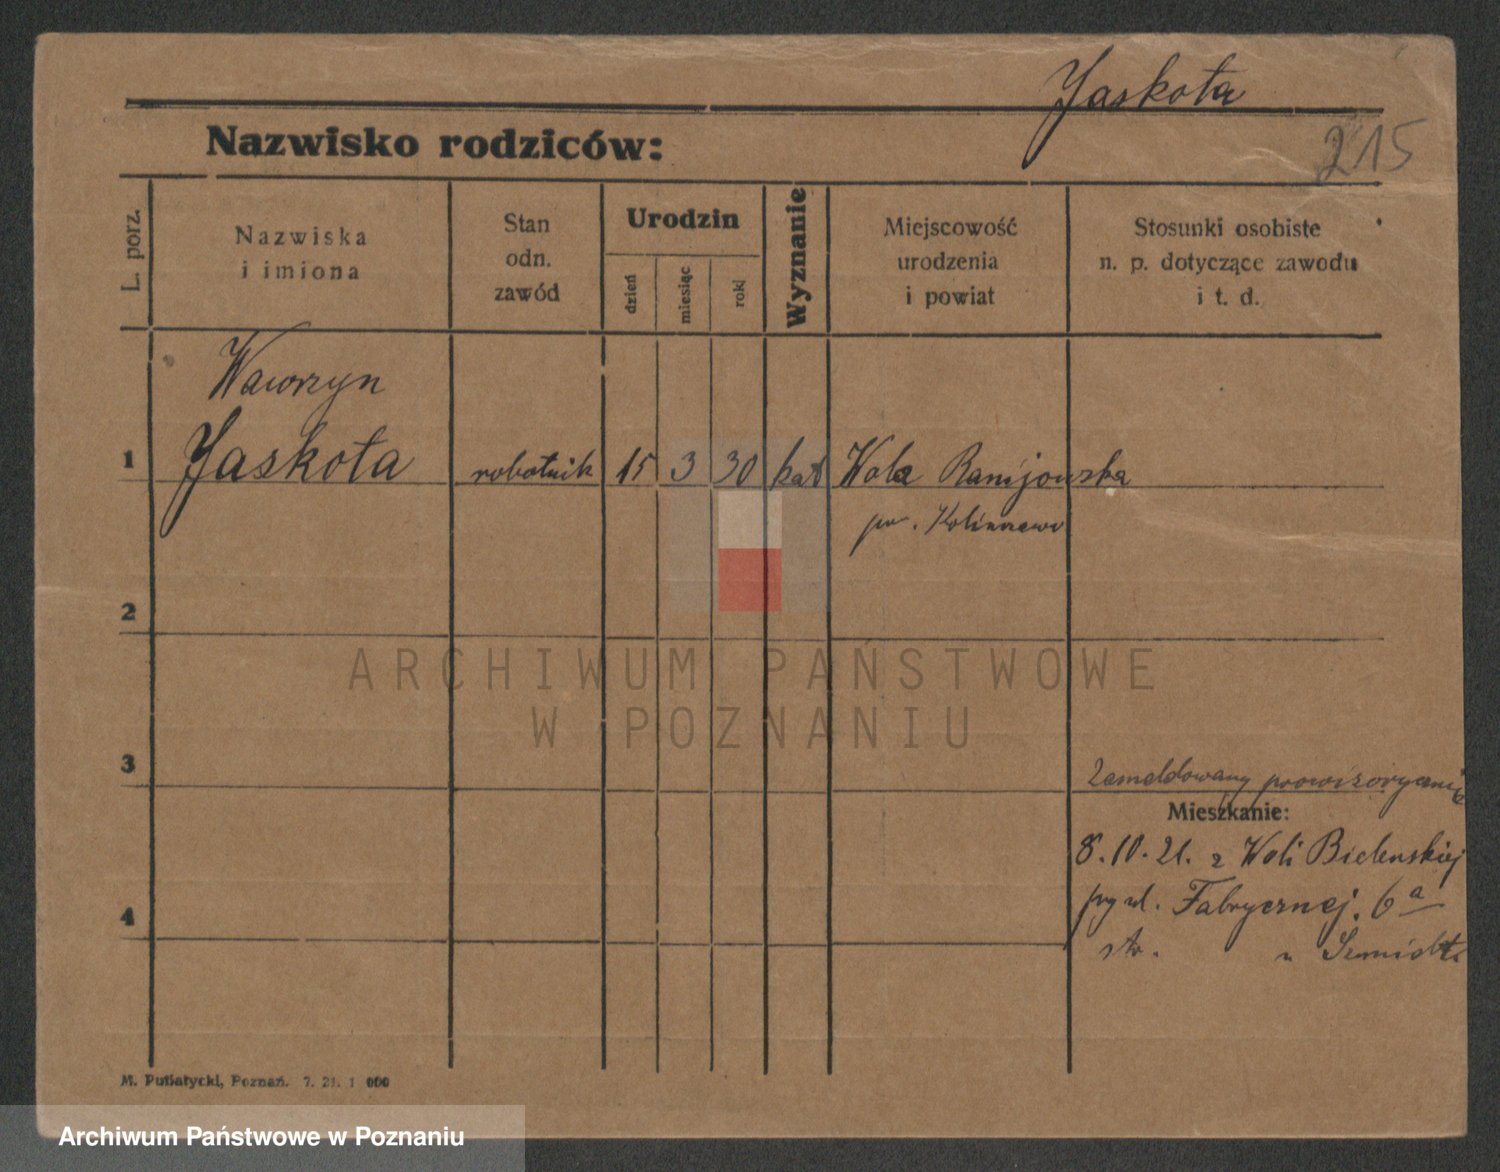 Jaskota
215
Nazwisko rodziców:
L. porz.
Nazwiska
i imiona
Stan
odn.
zawód
Urodzin
dzień
miesiąc
roki
Wyznanie
Miejscowość
urodzenia
i powiat
Stosunki osobiste
n. p. dotyczące zawodu
i t. d.
Wawrzyn
1 Jaskota robotnik 15 3 30 kat Wola
pow.
2
ARCHIWUM PAŃSTWOWE
W POZNANIU
3
Zameldowany prowizorycznie
Mieszkanie:
8.10.21. z Woli Bielenskiej
przy ul. Fabrycznej. 6a
4
u Szmidt.
M. Putiatycki, Poznań. 7. 21. 1 000
Archiwum Państwowe w Poznaniu